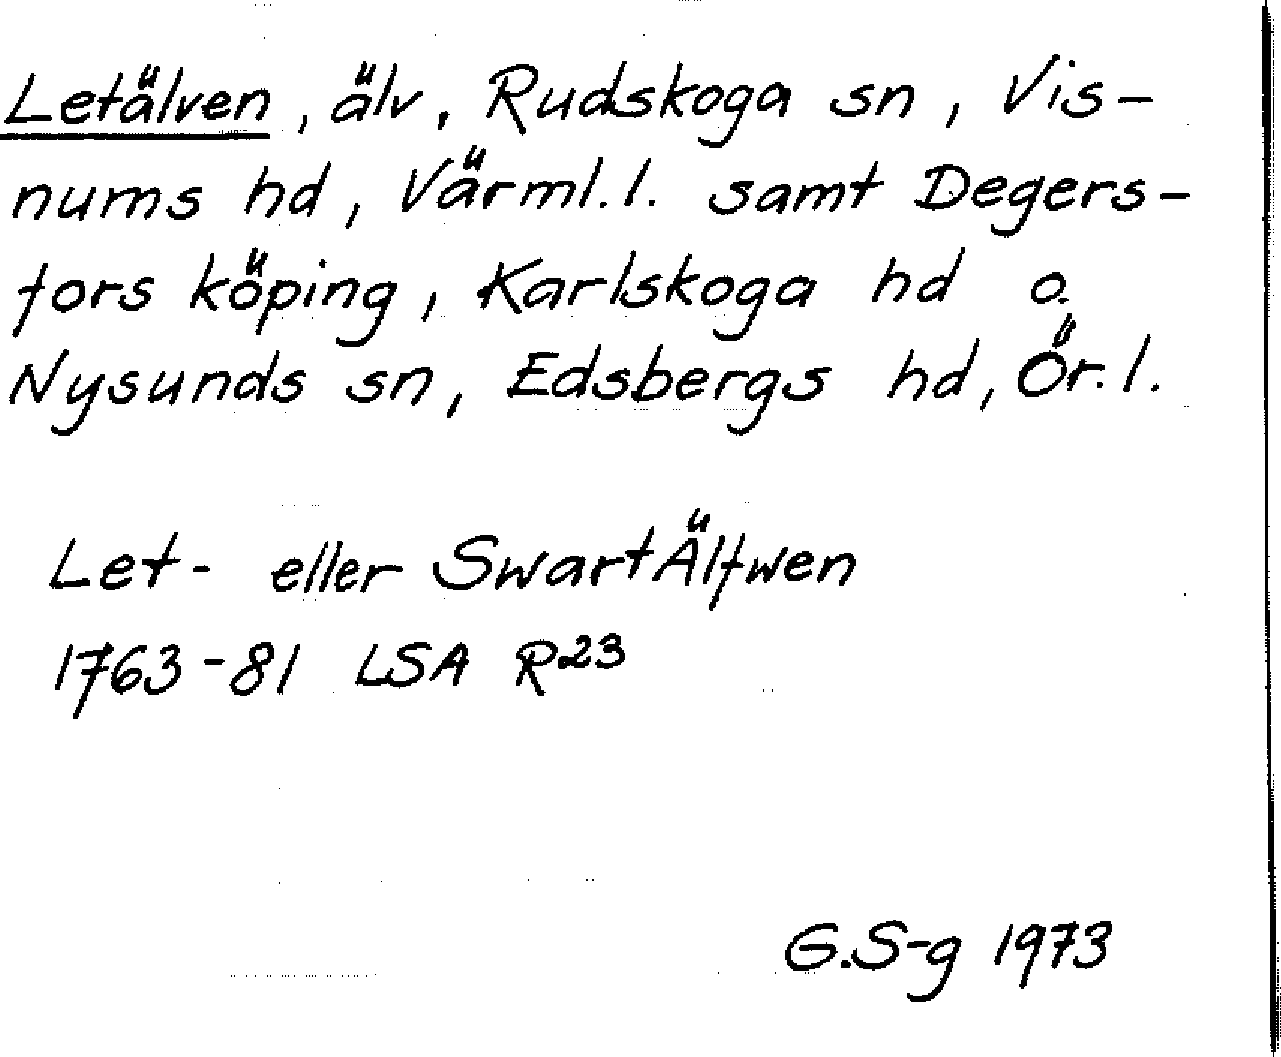 Letälven, älv, Rudskoga sn, Vis-
nums hd, Värml. l. samt Degers-
fors köping, Karlskoga hd o.
Nysunds sn, Edsbergs hd, Ör. l.
Let- eller SwartÄlfwen
1763-81 LSA R23
G.S-g 1973